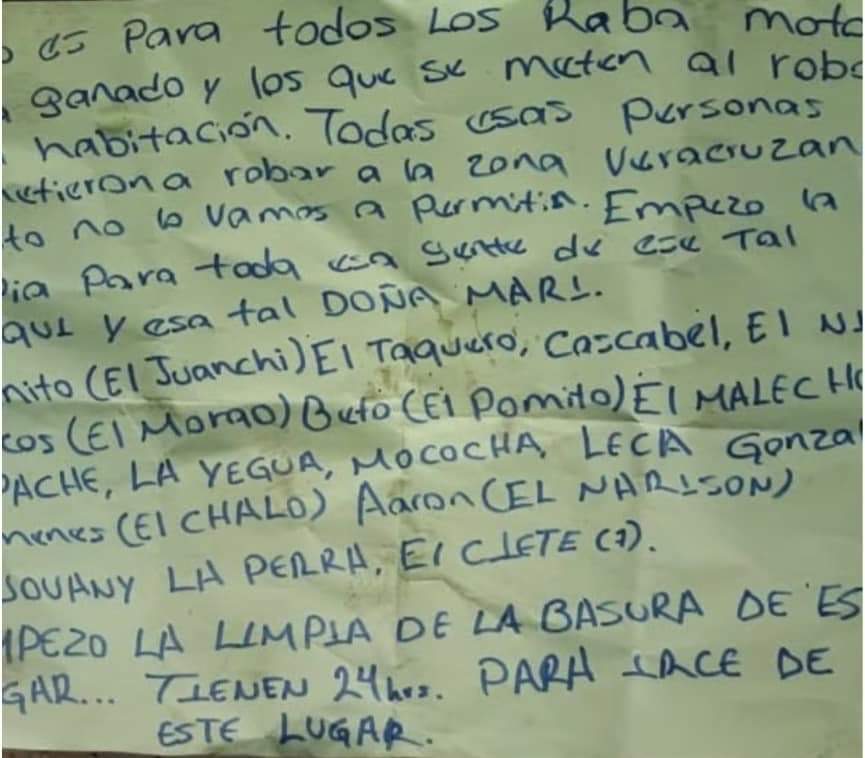 es Para todos Los Raba moto
ganado y los que se meten al robo
habitación. Todas esas personas
metieron a robar a la zona Veracruzan
to no lo vamos a Permitin. Empezo la
pia Para toda esa gente de ese Tal
que y esa tal DOÑA MARI.
nito (El Juanchi) El Taquero, Cascabel, El Ni
cos (El Morao) Beto (El Pomito) El MALECHO
PACHE, LA YEGUA, MOCOCHA, LECHA Gonza
menes (El CHALO) Aaron (EL NARISON)
JOVANY LA PERRA. El CIETE (7).
MPEZO LA LIMPIA DE LA BASURA DE ES
GAR... TIENEN 24 hrs. PARA IRCE DE
ESTE LUGAR.